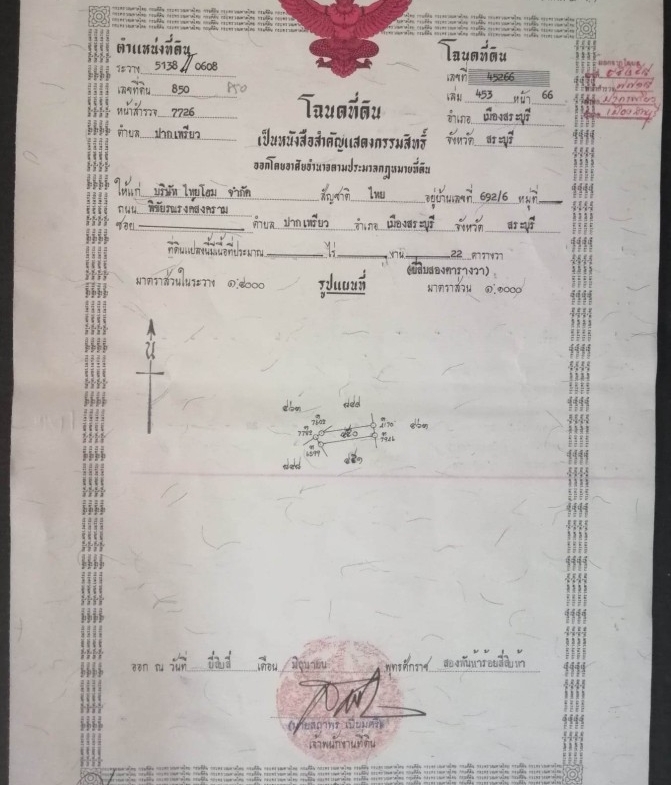 ตำแหน่งที่ดิน
ระวาง 5138 II 0608
เลขที่ดิน 850 850
หน้าสำรวจ 7726
ตำบล ปากเพรียว
โฉนดที่ดิน
เลขที่ 45266
เล่ม 453 หน้า 66
อำเภอ เมืองสระบุรี
จังหวัด สระบุรี
โฉนดที่ดิน
เป็นหนังสือสำคัญแสดงกรรมสิทธิ์
ออกโดยอาศัยอำนาจตามประมวลกฎหมายที่ดิน
ให้แก่ บริษัท ไทยโฮม จำกัด สัญชาติ ไทย อยู่บ้านเลขที่ 692/6 หมู่ที่
ถนน พิชัยรณรงค์สงคราม
ซอย ตำบล ปากเพรียว อำเภอ เมืองสระบุรี จังหวัด สระบุรี
ที่ดินแปลงนี้มีเนื้อที่ประมาณ ไร่ งาน 22 ตารางวา
(ยี่สิบสองตารางวา)
มาตราส่วนในระวาง ๑:๔๐๐๐ รูปแผนที่ มาตราส่วน ๑:๑๐๐๐
น
๘๕๐
ออก ณ วันที่ ยี่สิบสี่ เดือน มิถุนายน พุทธศักราช สองพันห้าร้อยสี่สิบห้า
เจ้าพนักงานที่ดิน